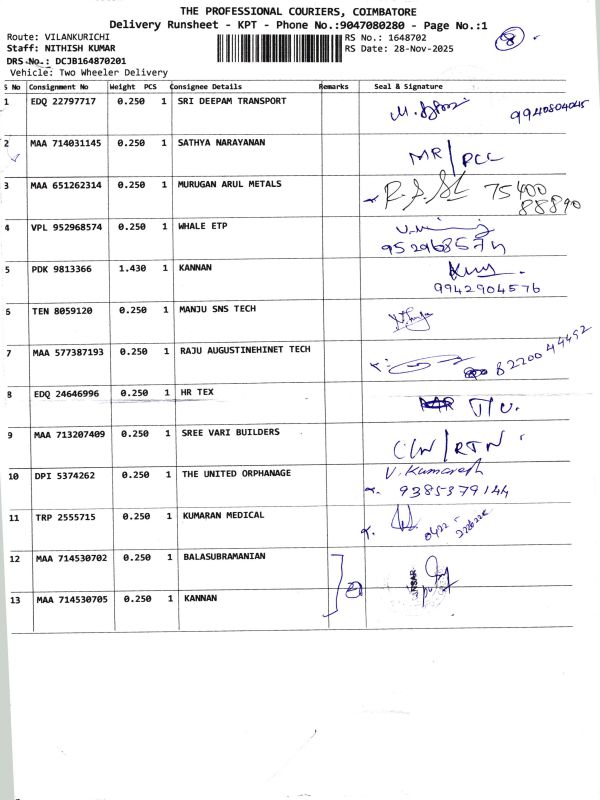 THE PROFESSIONAL COURIERS, COIMBATORE
Delivery Runsheet - KPT - Phone No.:9047080280 - Page No.:1
8
Route: VILANKURICHI
RS No.: 1648702
Staff: NITHISH KUMAR
RS Date: 28-Nov-2025
DRS No.: DCJB164870201
Vehicle: Two Wheeler Delivery
S No Consignment No Weight PCS Consignee Details Remarks Seal & Signature
1 EDQ 22797717 0.250 1 SRI DEEPAM TRANSPORT 9940804045
2 MAA 714031145 0.250 1 SATHYA NARAYANAN MR/PCC
3 MAA 651262314 0.250 1 MURUGAN ARUL METALS 75400
88890
4 VPL 952968574 0.250 1 WHALE ETP
952968574
5 PDK 9813366 1.430 1 KANNAN
9942904576
6 TEN 8059120 0.250 1 MANJU SNS TECH
7 MAA 577387193 0.250 1 RAJU AUGUSTINEHINET TECH 8220044452
8 EDQ 24646996 0.250 1 HR TEX
9 MAA 713207409 0.250 1 SREE VARI BUILDERS /RTN
10 DPI 5374262 0.250 1 THE UNITED ORPHANAGE V. Kumaresh
9385379144
11 TRP 2555715 0.250 1 KUMARAN MEDICAL 0422-
12 MAA 714530702 0.250 1 BALASUBRAMANIAN
13 MAA 714530705 0.250 1 KANNAN